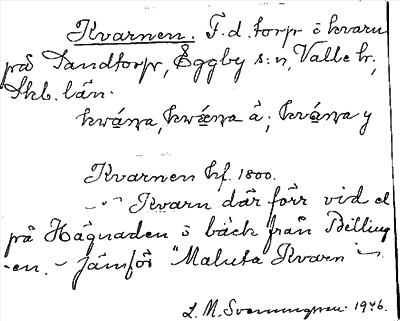 Kvarnen. F.d. torp o kvarn
på Sandtorp, Eggby s:n, Valle hr,
Skb. län.
kwána, kwána å; kvána y
Kvarnen hf. 1800.
-"- Kvarn där förr vid el
på Hägnaden i bäck från Billing
-en. - Jämför "Maluta Kvarn"
L. M. Svenungsson 1946.